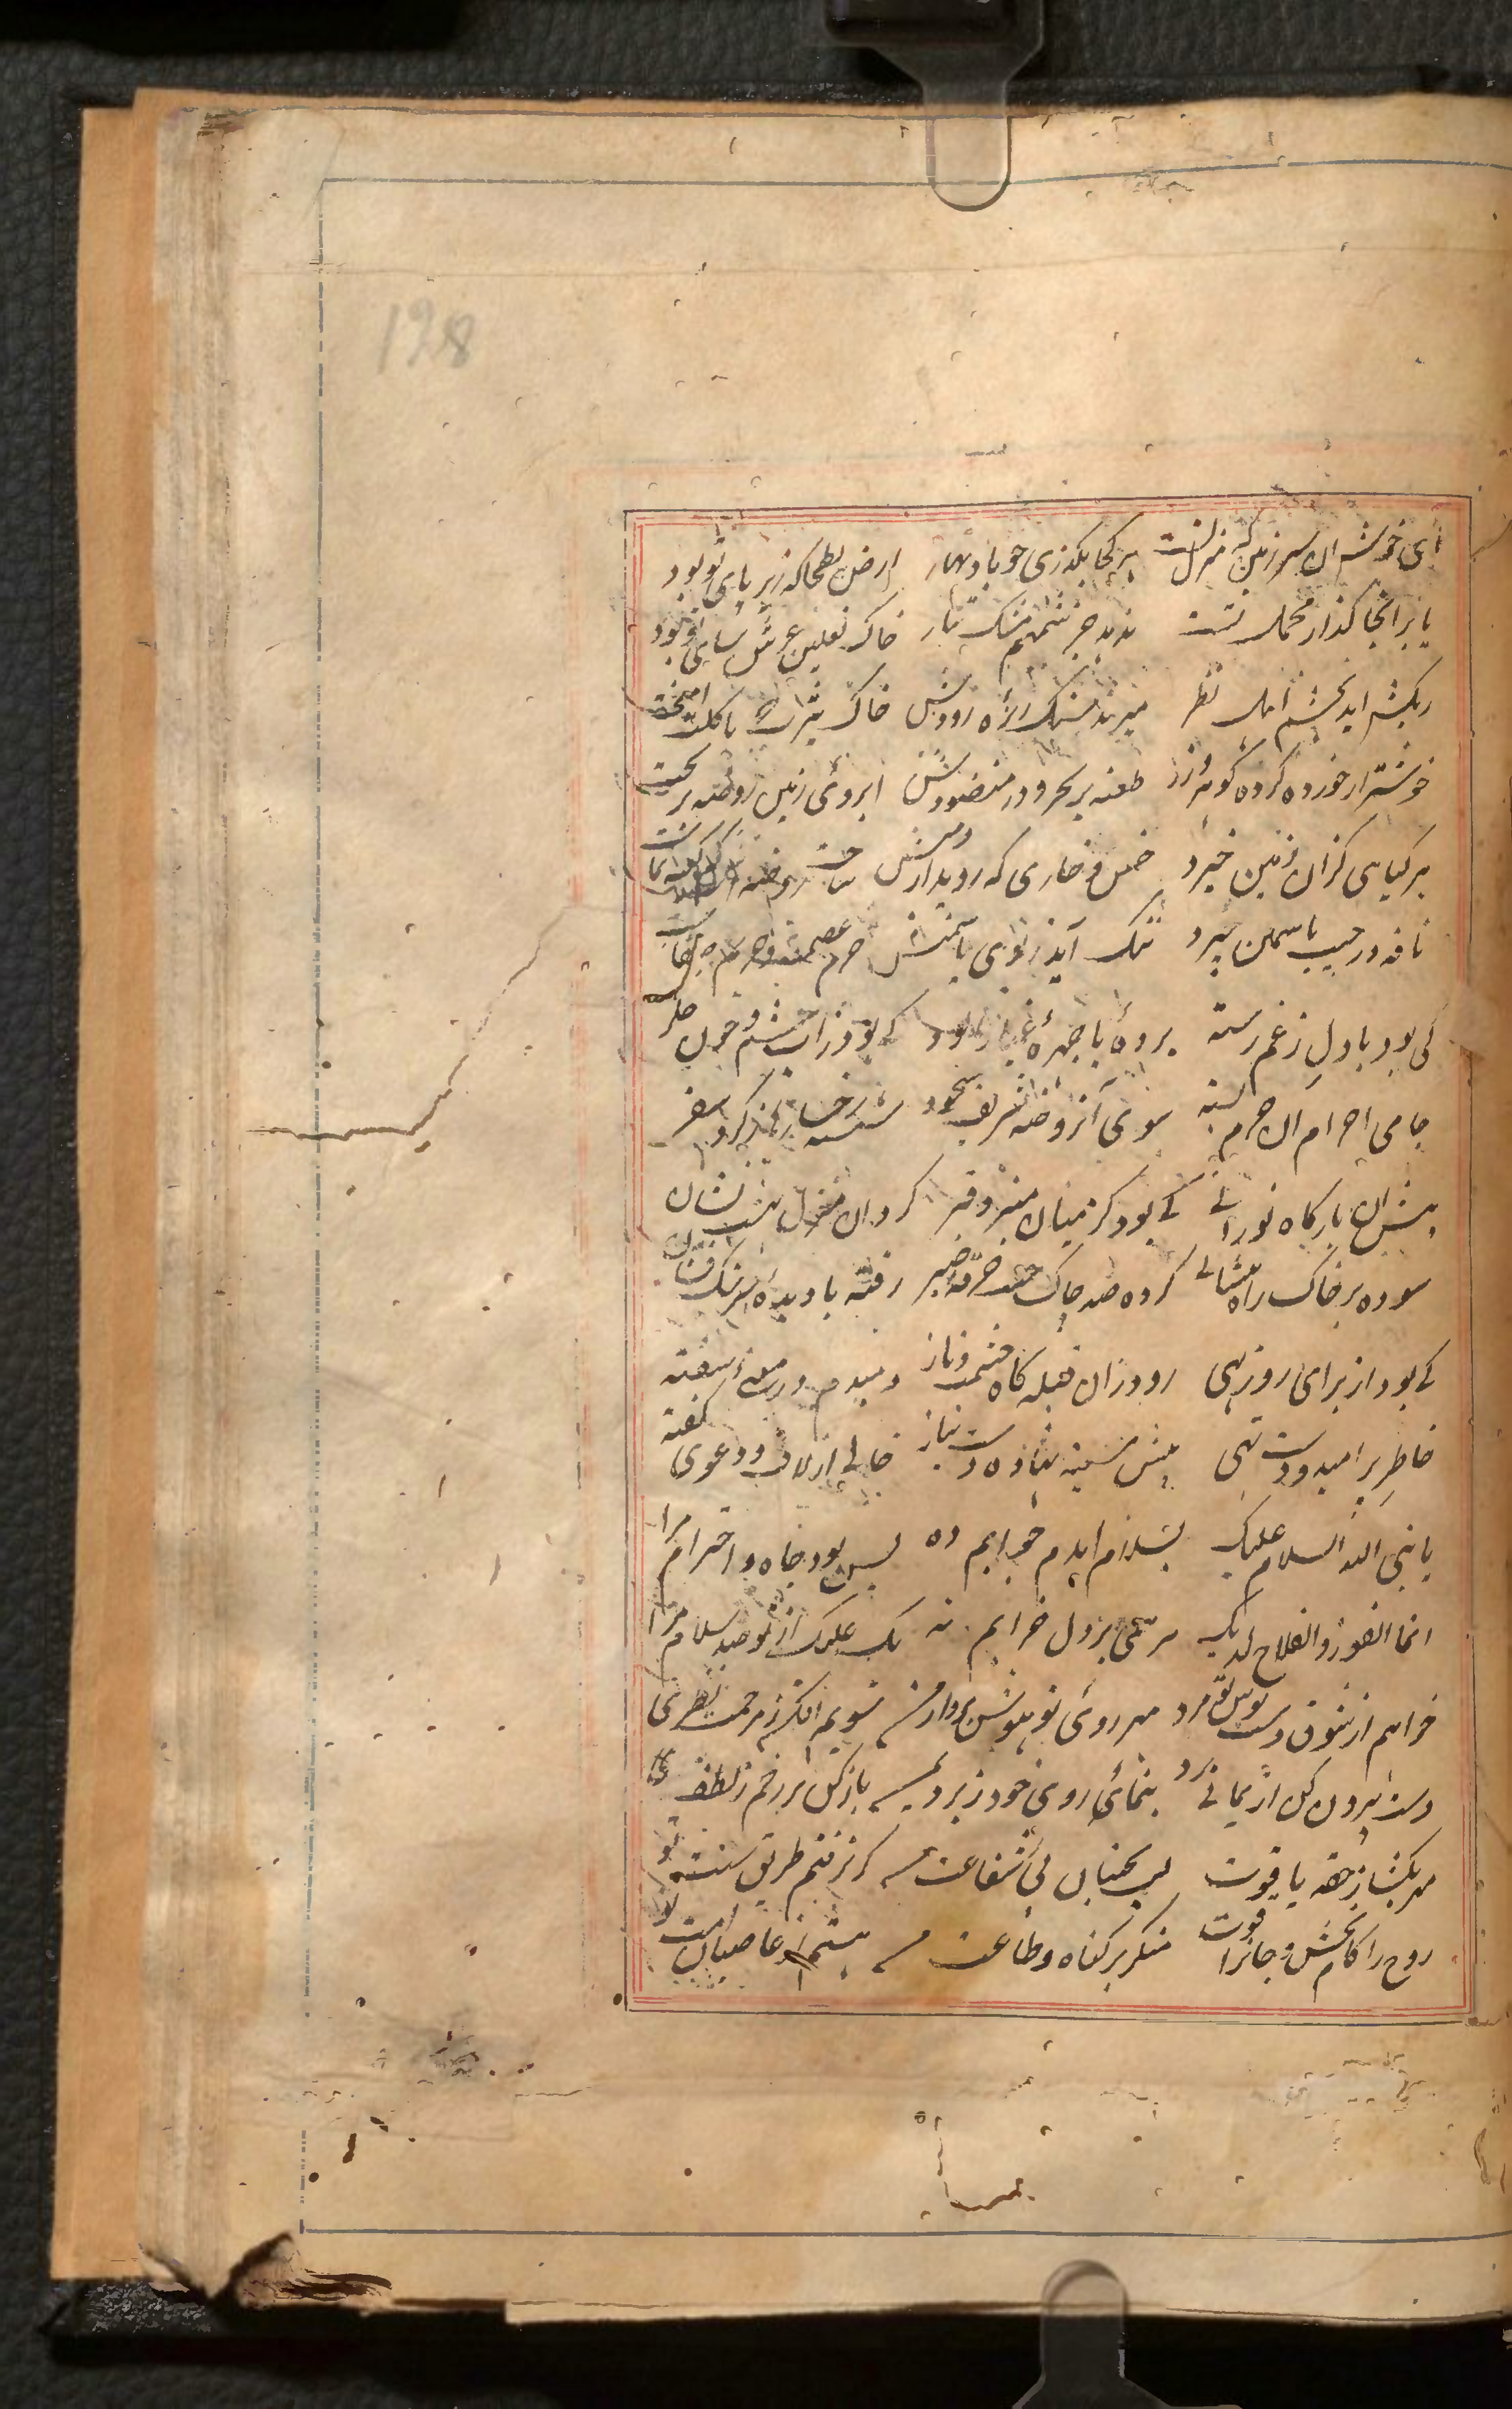 198
ای خوش ان سرزمین که منزل تست هر کجا بکذری چو باد بهار ارض بطحا که زیر پای تو بود
یا بر انجا کذار محمل تست ندهد جز شمیم مشک تتار خاک نعلین عرش سای تو بود
ریکش اید بچشم اهل نظر خاک یثرب که با کلت امیخت
خوشتر از خورده کرده کوهر و زر طعنه بر بحر و در منضودش ابروی زمین روضه بریخت
هر کیاهی کزان زمین خیزد خس و خاری که روید از دمنش ساحت روضه
نافه در جیب یاسمین ریزد ننک آید ز بوی یاسمنش حرم عصمت و حریم
کی بود با دل ز غم رسته برده با چهرهٔ غبار الود کی بود ز اب چشم و خون جکر
جامی احرام ان حرم بسته سوی آنروضه شریف سجود شسته رخساره ز کرد سفر
پیش ان بارکاه نورانی کی بود کز میان منبر و قبر کرد ان منزل بهشت نشان
سوده بر خاک راه پیشانی کرده صد چاک جیب خرقه صبر رفته با دیده سرشک فشان
کی بود از برای روزبهی رو دران قبله کاه حشمت و ناز دمبدم در معنی سفته
خاطر پر امید و دست تهی پیش سینه نهاده دست نیاز خالی از لاف و دعوی کفته
یا نبی الله السلام علیک بسلام امدم جوابم ده بس بود جاه و احترام مرا
انما الفوز والفلاح لدیک مرهمی بر دل خرابم نه یک علیک از تو صد سلام مرا
خواهم از شوق دست بوس تو مرد مهر روی تو هوش برد از من سویم افکن ز مرحمت نظری
دست بیرون کن از یمانی برد بنمای روی خود ز برد یمن باز کن بر رخم ز لطف دری
مهر بکشا ز حقه یاقوت لب بجنبان پی شفاعت من کر نرفتم طریق سنت تو
روح را کام بخش و جانرا قوت منکر بر کناه و طاعت من هستم از عاصیان امت تو